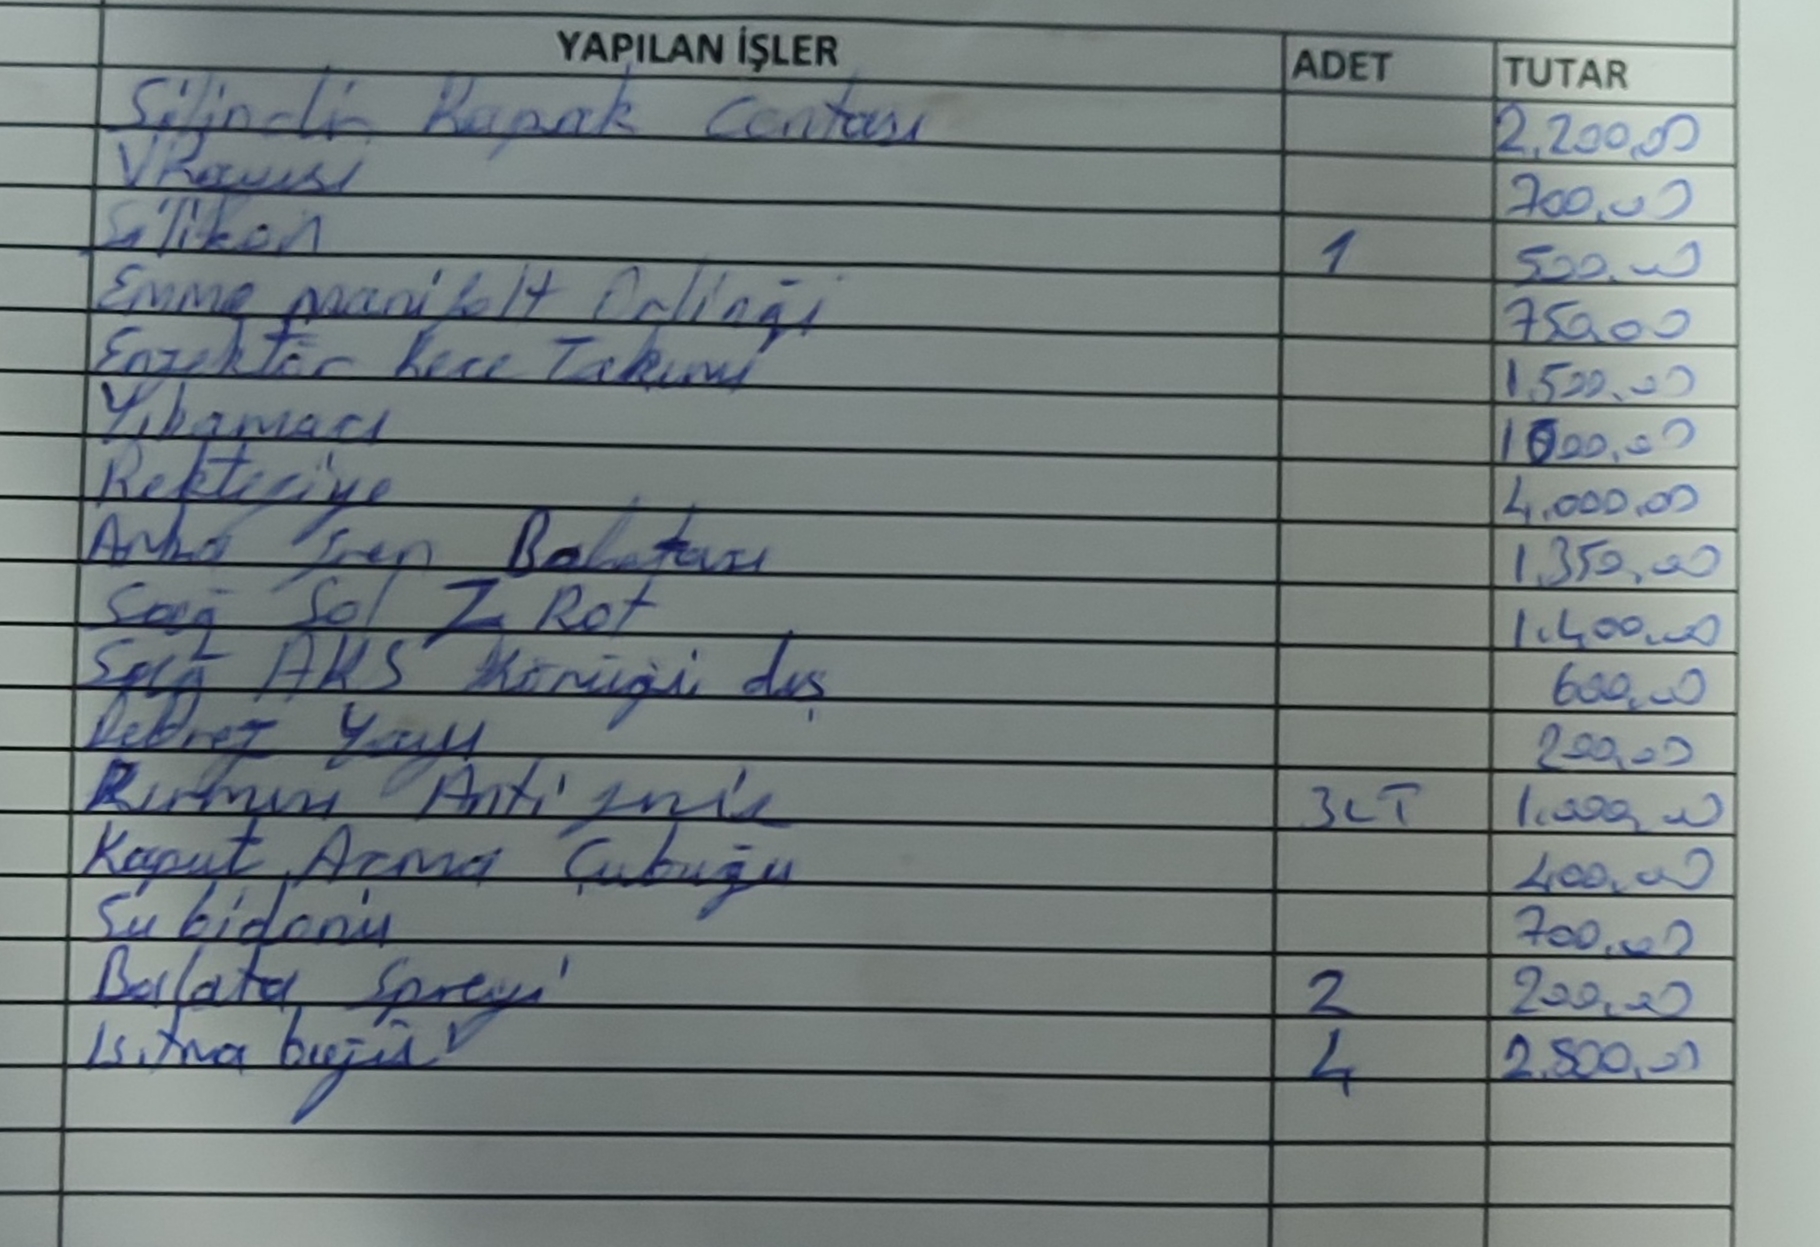 YAPILAN İŞLER ADET TUTAR
Silindir Kapak Contası 2.200,00
V Kayışı 700,00
Silikon 1 500,00
Emme manifolt Orlinği 750,00
Enzektör kece Takımı 1.500,00
Yıkamacı 1000,00
Rektefiye 4.000,00
Arka fren Balatası 1.350,00
Sağ Sol Z Rot 1.400,00
Sağ AKS Körüğü dış 600,00
Debrej Yayı 200,00
Kırmızı Antifriz 3LT 1.000,00
Kaput Açma Çubuğu 400,00
Su bidonu 700,00
Balata Spreyi 2 200,00
Isıtma buğü 4 2.800,00